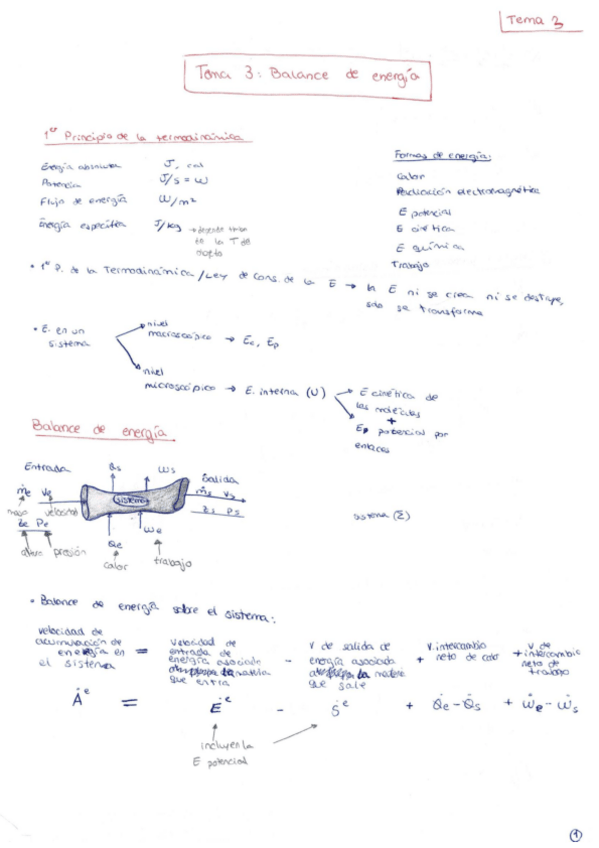 Tema 3
Tema 3: Balance de energía
1er Principio de la termodinámica
Energía absoluta J, cal
Potencia J/s = W
Flujo de energía W/m²
Energía específica J/kg → depende
la T del
Formas de energía:
Calor
Radiación electromagnética
E potencial
E cinética
E química
Trabajo
• 1er P. de la Termodinámica / Ley de Cons. de la E → la E ni se crea ni se destruye,
solo se transforma
• E. en un
sistema
nivel
macroscópico → Ec, Ep
nivel
microscópico → E. interna (U)
E cinética de
las moléculas
+
Ep potencial por
enlaces
Balance de energía
Entrada
Qs Ws
Salida
ṁe Ve
sistema
ṁs Vs
masa velocidad
Ze Pe
Zs Ps
Qe We
altura presión
calor trabajo
sistema (Σ)
• Balance de energía sobre el sistema:
velocidad de
acumulación de
energía en
el sistema
=
Velocidad de
entrada de
energía asociada
la materia
que entra
-
V de salida de
energía asociada
la materia
que sale
+
V. intercambio
neto de calor
+
V de
intercambio
neto de
trabajo
Ȧᵉ = Ėᵉ - Ṡᵉ + Q̇e - Q̇s + Ẇe - Ẇs
incluyen la
E potencial
1